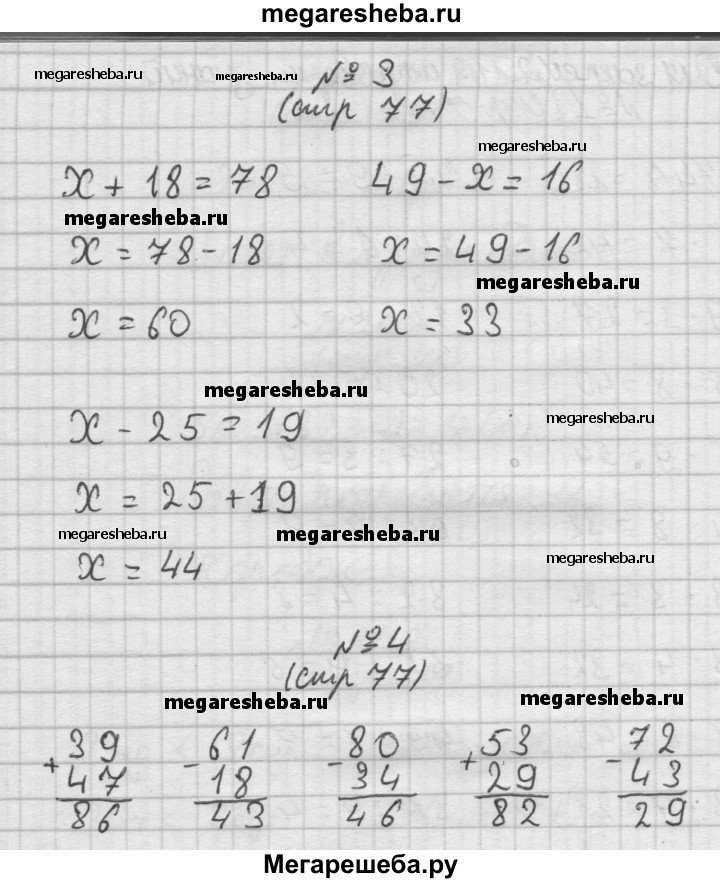 megaresheba.ru
megaresheba.ru megaresheba.ru № 3
(стр 77)
megaresheba.ru
x + 18 = 78 49 - x = 16
megaresheba.ru
x = 78 - 18 x = 49 - 16
megaresheba.ru
x = 60 x = 33
megaresheba.ru
x - 25 = 19 megaresheba.ru
x = 25 + 19
megaresheba.ru megaresheba.ru
x = 44 megaresheba.ru
№ 4
(стр 77)
megaresheba.ru megaresheba.ru
+ 39 - 61 - 80 + 53 - 72
47 18 34 29 43
86 43 46 82 29
Мегарешеба.ру